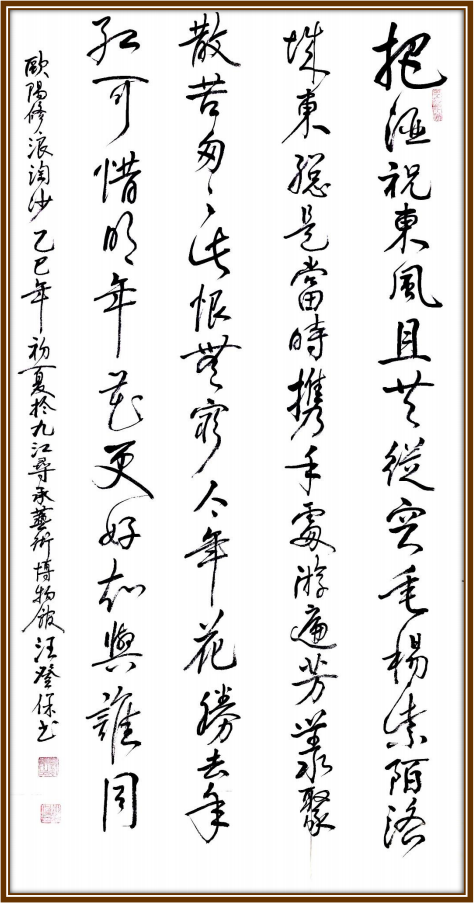 把酒祝東風且共從容垂楊紫陌洛
城東總是當時携手處游遍芳叢聚
散苦匆匆此恨無窮今年花勝去年
紅可惜明年花更好知與誰同
歐陽修浪淘沙 乙巳年初夏於九江尋承藝術博物館汪登保书